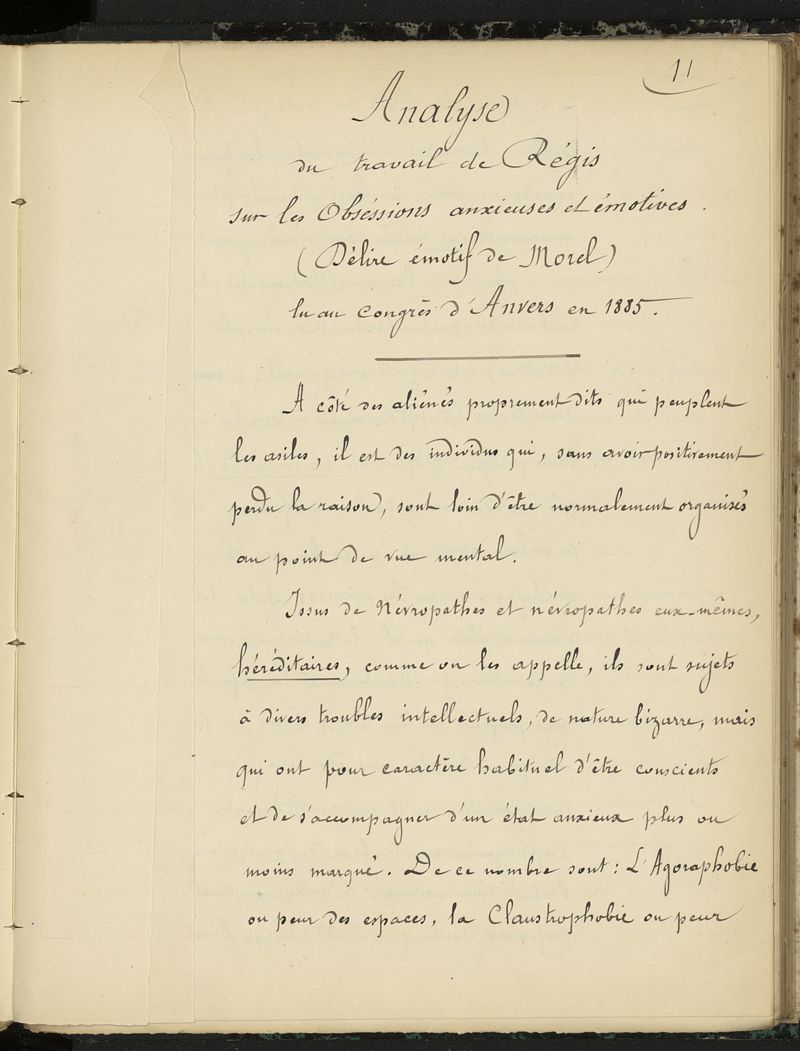 11
Analyse
du travail de Régis
sur les Obséssions anxieuses et émotives.
(Délire émotif de Morel)
lu au Congrès d'Anvers en 1885.
A côté des aliénés proprement dits qui peuplent
les asiles, il est des individus qui, sans avoir positivement
perdu la raison, sont loin d'être normalement organisés
au point de vue mental.
Issus de Névropathes et névropathes eux-mêmes,
héréditaires, comme on les appelle, ils sont sujets
à divers troubles intellectuels, de nature bizarre, mais
qui ont pour caractère habituel d'être conscients
et de s'accompagner d'un état anxieux plus ou
moins marqué. De ce nombre sont : L'Agoraphobie
ou peur des espaces, la Claustrophobie ou peur